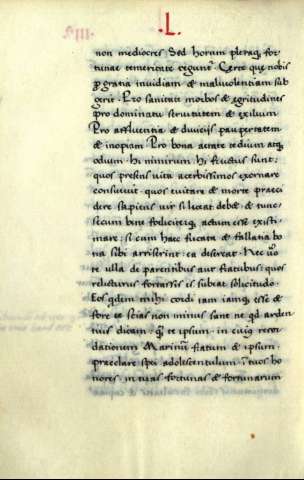 .L.
non mediocres. Sed horum pleraq; for
tunae temeritate reguntur. Certe que nobis
gratia invidiam & malivolentiam sub
gerit. Pro sanitate morbos & egritudines
pro dominatu servitutem & exilium.
Pro affluentia & diviciis paupertatem
& inopiam. Pro bona aetate tedium atq;
odium. Hi nimirum hi fructus sunt:
quos presens vita acerbissimos exornare
consuevit. quos evitare & morte praeci
dere sapiens vir si letat debet & tunc
secum bene feliciterq; actum esse existi
mare: si cum haec fucata & fallatia bo
na sibi arriserint: ea deserat. Nec
te ulla de parentibus aut fratibus: quos
relicturus fortassis es subeat solicitudo.
Eos qdem mihi cordi tam iamq; esse &
fore ta scias non minus sant ne qd arden
tius dicam: te ipsum. in cuius recor
dationem Marinum fratum & ipsum
praeclare spei adolescentulum: tuos ho
nores in tuas fortunas & fortunarum